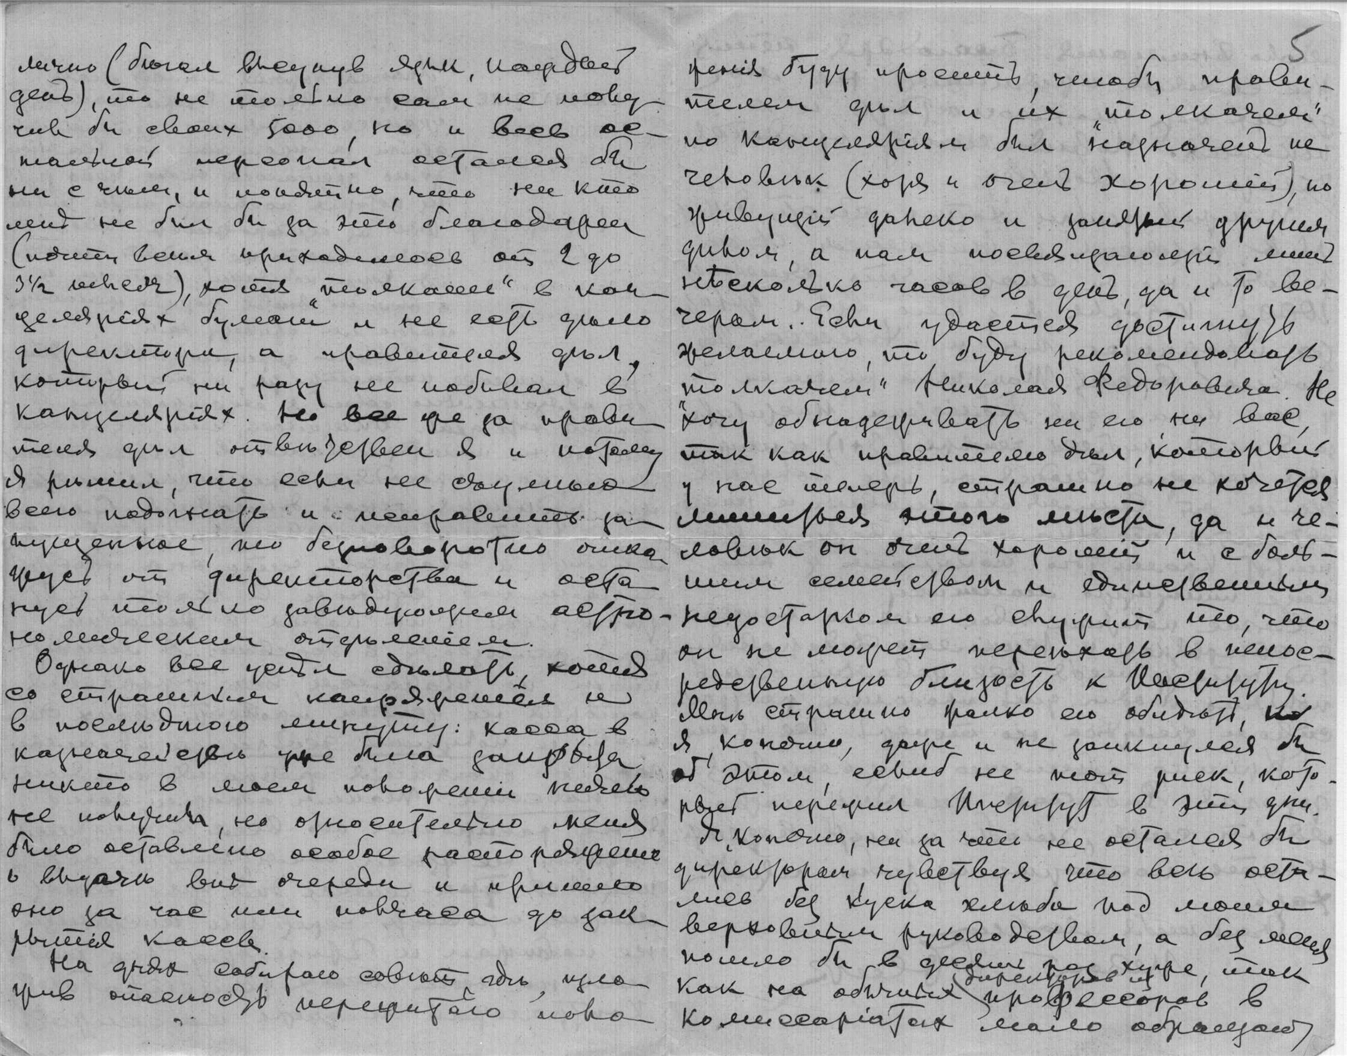 лично (бѣгал высунув язык, каждый
день), то не только сам не полу-
чил бы своих 5000, но и весь ос-
тальной персонал остался бы
ни с чѣм, и понятно, что ни кто
мнѣ не был бы за это благодарен
(почти всѣм приходилось от 2 до
3½ тысяч), хотя "толкание" в кан-
целяріях бумаги и не есть дѣло
директора, а правителя дѣл,
который ни разу не побывал в
канцеляріях. Но все же за прави-
теля дѣл отвѣтствен я и потому
я рѣшил, что если не сдѣлаю
всего подогнать и исправить за-
пущенное, то безповоротно отка-
жусь от директорства и оста-
нусь только завѣдующим астро-
номическим отдѣленіем.
Однако все успѣл сдѣлать, хотя
со страшным напряженіем и
в послѣднюю минуту: касса в
казначействѣ уже была закрыта
никто в моем положеніи ничего
не получил, но относительно меня
было оставлено особое распоряженіе
о выдачѣ внѣ очереди и пришло
оно за час или полчаса до зак-
рытія кассы.
На днях собираю совѣт, гдѣ, изло-
жив опасность пережитаго поло-
5
женія буду просить, чтобы прави-
телем дѣл и их "толкачем"
по канцеляріям был назначен не
человѣк (хотя и очень хорошій), но
живущій далеко и занятый другим
дѣлом, а нам посвящающій лишь
нѣсколько часов в день, да и то ве-
чером. Если удастся достигнуть
желаемаго, то буду рекомендовать
"толкачем" Николая Федоровича. Не
хочу обнадеживать ни его ни вас,
так как правителю дѣл, который
у нас теперь, страшно не хочется
лишиться этого мѣста, да и че-
ловѣк он очень хорошій и с боль-
шим семейством и единственным
недостатком его служит то, что
он не может переѣхать в непос-
редственную близость к Институту.
Мнѣ страшно жалко его обидѣть, но
я, конечно, даже и не заикнулся бы
об этом, еслиб не тот риск, кото-
рый пережил Институт в эти дни.
Я, конечно, ни за что не остался бы
директором, чувствуя что всѣ оста-
лись без куска хлѣба под моим
верховным руководством, а без меня
пошло бы в десять раз хуже, так
как на обычных директоров и профессоров в
комиссаріатах мало обращают